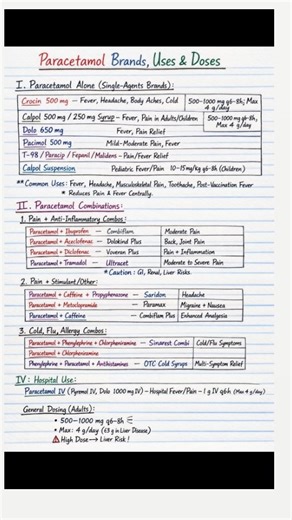 Paracetamol Brands, Uses & Doses
I. Paracetamol Alone (Single-Agents Brands):
Crocin 500 mg – Fever, Headache, Body Aches, Cold
500-1000 mg q6-8h; Max 4 g/day
Calpol 500 mg / 250 mg Syrup – Fever, Pain in Adults/Children
500-1000 mg q6-8h, Max 4 g/day
Dolo 650 mg Fever, Pain Relief
Pacimol 500 mg Mild-Moderate Pain, Fever
T-98 / Paracip / Fepanil / Malidens – Pain/Fever Relief
Calpol Suspension Pediatric Fever/Pain 10-15 mg/kg q6-8h (Children)
** Common Uses: Fever, Headache, Musculoskeletal Pain, Toothache, Post-Vaccination Fever
* Reduces Pain & Fever Centrally.
II. Paracetamol Combinations:
1. Pain + Anti-Inflammatory Combos:
Paracetamol + Ibuprofen — Combiflam Moderate Pain
Paracetamol + Aceclofenac — Dolokind Plus Back, Joint Pain
Paracetamol + Diclofenac — Voveran Plus Pain + Inflammation
Paracetamol + Tramadol — Ultracet Moderate to Severe Pain
* Caution: GI, Renal, Liver Risks.
2. Pain + Stimulant/Other:
Paracetamol + Caffeine + Propyphenazone — Saridon Headache
Paracetamol + Metoclopramide — Paramax Migraine + Nausea
Paracetamol + Caffeine — Combiflam Plus Enhanced Analgesia
3. Cold, Flu, Allergy Combos:
Paracetamol + Phenylephrine + Chlorpheniramine — Sinarest Combi Cold/Flu Symptoms
Paracetamol + Chlorpheniramine
Phenylephrine + Paracetamol + Antihistamines — OTC Cold Syrups Multi-Symptom Relief
IV: Hospital Use:
Paracetamol IV (Pyremol IV, Dolo 1000 mg IV) – Hospital Fever/Pain – 1 g IV q6h (Max 4 g/day)
General Dosing (Adults):
• 500-1000 mg q6-8h
• Max: 4 g/day (≤3 g in Liver Disease)
⚠ High Dose → Liver Risk!